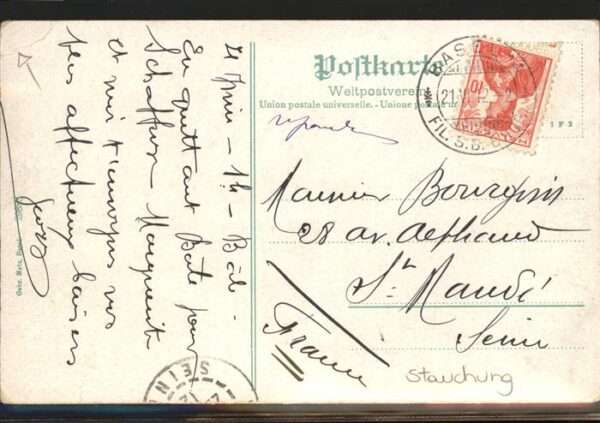 Postkarte
Weltpostverein
Union postale universelle. - Unione postale
BASEL
21
FIL. S.B.
10
21 Juin - 1h - Bâle -
En quittant Bâle pour
Schaffouse Marguerite
et moi t'envoyons nos
plus affectueux baisers
Monsieur Bourgoin
28 av. Alphand
St Mandé
Seine
France
Stauchung
SEINE
Gebr. Metz, Basel